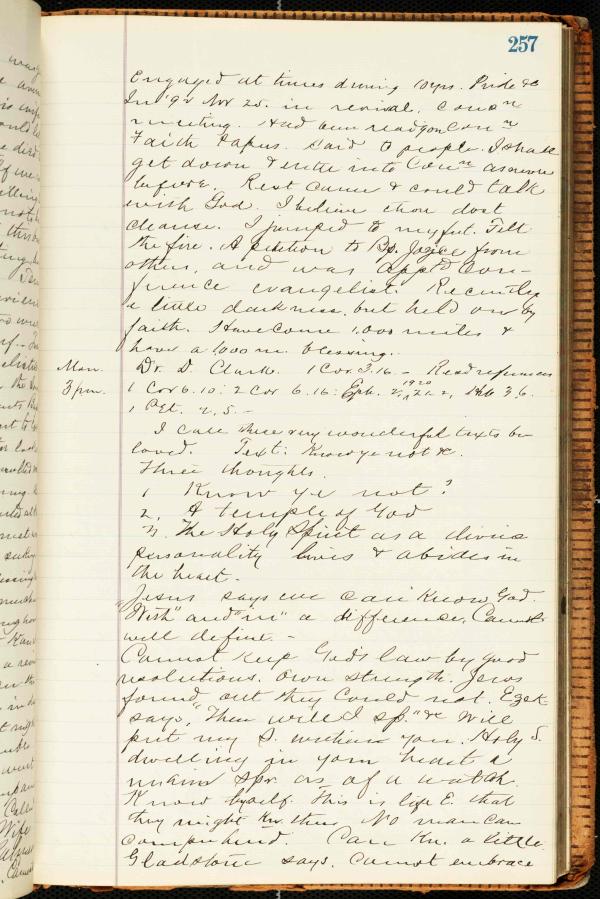 257
Engaged at times during 10 yrs. Pride &c
In '92 Nov 25. in revival. Consn
meeting. Had been reading on Consn
Faith papers. Said to people. I shall
get down & enter into Consn as never
before. Rest came & could talk
with God. I believe thou dost
cleanse. I jumped to my feet. Felt
the fire. A petition to Bp. Joyce from
others, and was apptd Con-
ference evangelist. Recently
a little darkness, but held on by
faith. Have come 1,000 miles &
have a 1000 m. blessing.
Mon. Dr. D. Clark. 1 Cor. 3.16. – Read references
3 pm. 1 Cor 6.10: 2 Cor 6.16: Eph. 2, 19 20 21.2, Heb 3.6.
1 Pet. 2,5. –
I call these very wonderful texts be
loved. Text: Know ye not &c.
Three thoughts.
1 Know ye not?
2. A temple of God
3. The Holy Spirit as a divine
personality lives & abides in
the heart.
Jesus says we can know God.
"With" and "in" a difference, Cannot
well define. –
Cannot keep God's law by good
resolutions. Own strength. Jews
found out they could not. Ezek
says, "Then will I sp." &c Will
put my S. within you. Holy S.
dwelling in your heart a
main spr. as of a watch.
Know thyself. This is life E. that
they might kn. thee No man can
comprehend. Can Kn. a little
Gladstone says. Cannot embrace